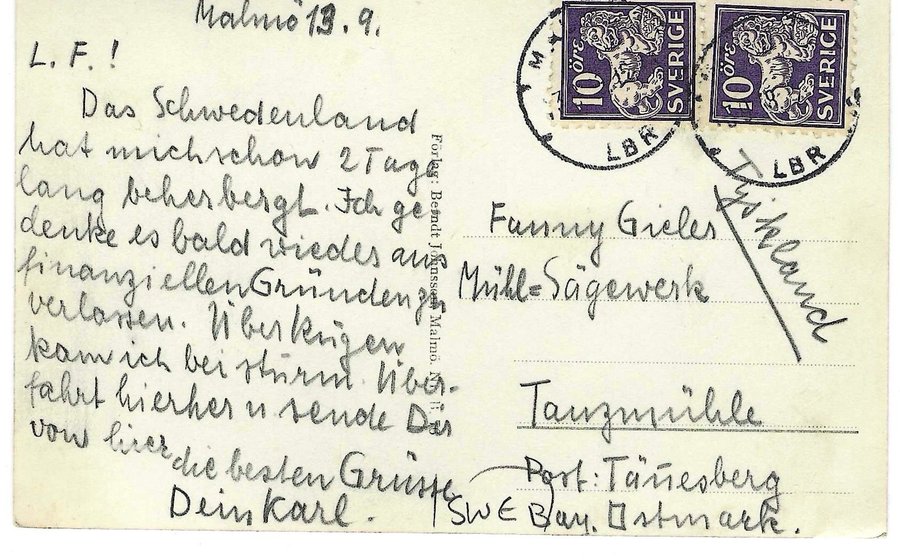 Malmö 13.9.
L. F.!
Das Schwedenland
hat mich schon 2 Tage
lang beherbergt. Ich ge
denke es bald wieder aus
finanziellen Gründen zu
verlassen. Über Rügen
kam ich bei Sturm. Über-
fahrt hierher u sende Dir
von hier
die besten Grüsse
Dein Karl.
Förlag: Berndt Johnsson, Malmö.
10 öre
SVERIGE
10 öre
SVERIGE
LBR
LBR
Tyskland
Fanny Gieler
Mühl=Sägewerk
Tanzmühle
Post: Täuesberg
SWE Bay. Ostmark.